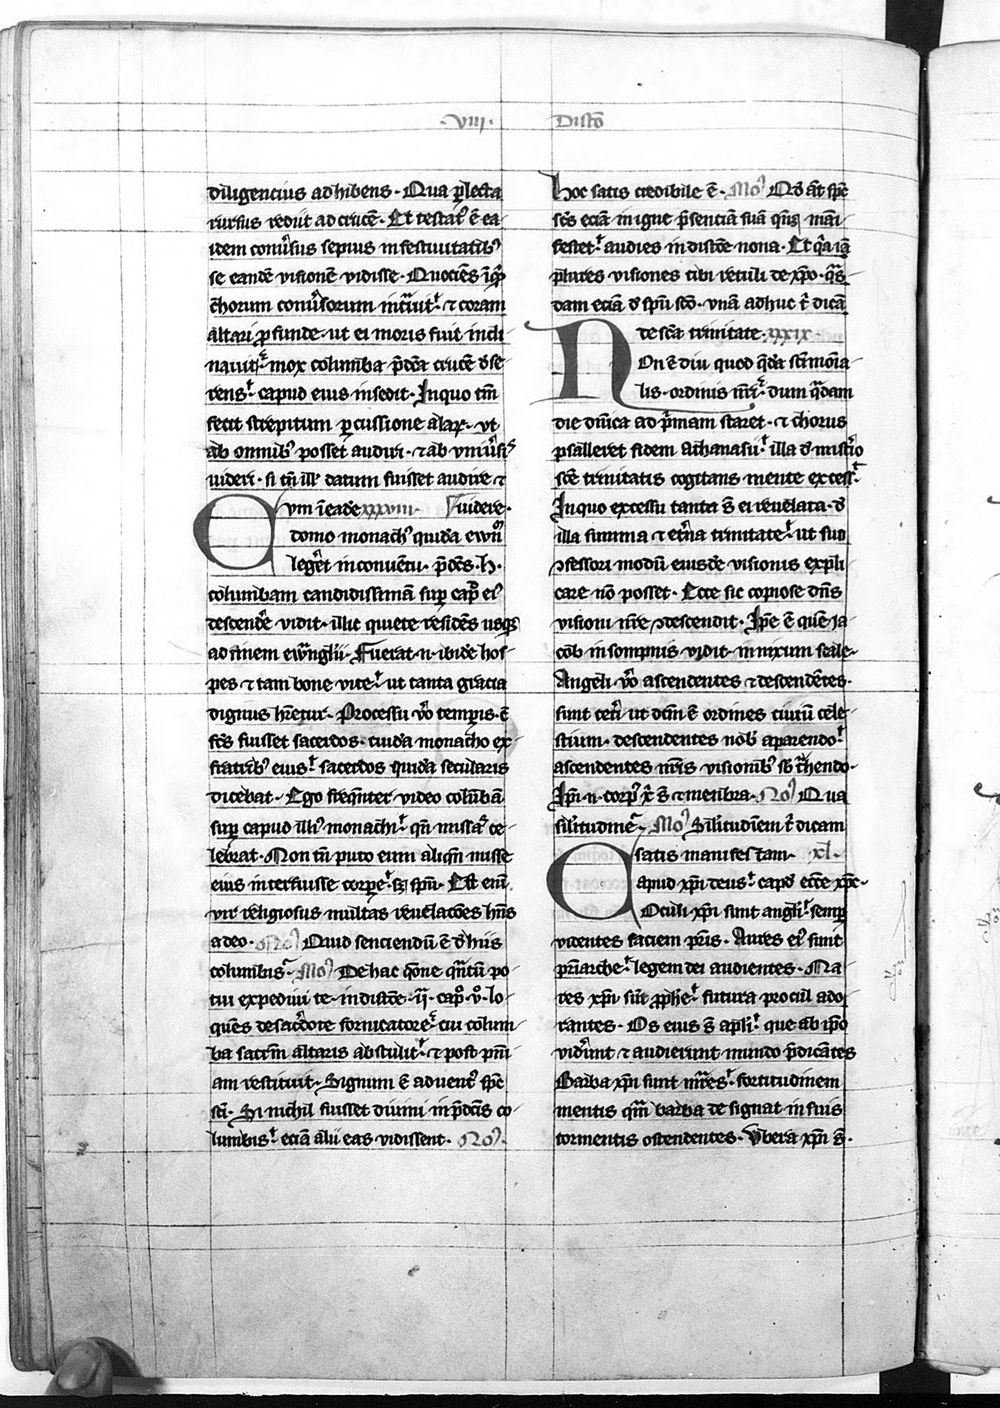 ·viij· Disto
diligencius adhibens· Qua ꝑlecta
rursus redijt ad crucē· Et testatꝰ ē ea-
idem conuersus sepius in festiuitatibꝰ
se eandē visionē vidisse· Quociēs
chorum conuersorum intrauit· ⁊ coram
altari ꝓfunde· ut ei moris fuit incli
nauit· mox columba p̄dca crucē dese
rens· capud eius insedit· In quo tm̄
fecit strepitum ꝑcussione alaꝝ· ut
ab omnibꝰ posset audiri· ⁊ ab vniuersis
uideri· si tn̄ illis datum fuisset audire ⁊
Cum ī eadē xxxviii· uidere·
domo monachꝰ quidā ewan
legeret in conuētu· p̄dcs· h·
columbam candidissimā suꝑ capud eiꝰ
descendere vidit· illic quiete residēs usqꝫ
ad finem ewangelii· Fuerat ·n· ibidē hos-
pes ⁊ tam bone vite· ut tanta gracia
dignus haberetur· Processu vero temporis· ē
fcs fuisset sacerdos· cuidā monacho ex
fratribꝰ eius· sacerdos quidā secularis
dicebat· Ego frequenter video colūbā
suꝑ capud illiꝰ monachi· qn̄ missas ce-
lebrat· Non tn̄ puto eum aliqn̄ misse
eius interfuisse corꝑe· sꝫ spū· Est enī
vir religiosus multas reuelacōes hn̄s
a deo· Noꝰ Quid senciendū ē de hiis
columbis· Moꝰ De hac qōne quantū po
tui expediui te· in distōe· ii· capo· v· lo-
quēs de sacerdote fornicatore· cui colum-
ba sacrm̄ altaris abstulit· ⁊ post pni-
am restituit· Signum ē aduentꝰ spc
sci· Si nichil fuisset diuini in p̄dcis co-
lumbis· eciā alii eas vidissent· Noꝰ·
Hoc satis credibile ē· Moꝰ Qd aūt spc
scs eciā in igne p̄senciā suā mani
festet· audies in distōe nona· Et quia iā
plures visiones tibi retuli de xpo· quas
dam eciā de spū sco· vnā adhuc tibi dicā
de scā trinitate· xxxix·
Non ē diu quod quedā scimonia-
lis· ordinis nri· dum quadam
die dnica ad primam staret· ⁊ chorus
psalleret fidem athanasii· illa de misterio
sce trinitatis cogitans mente excessit·
In quo excessu tanta s̄ ei reuelata· de
illa summa ⁊ eterna trinitate· ut suo
ꝯfessori modū eiusdē visionis expli
care nō posset· Ecce sic copiose dn̄s
visioni nre ꝯdescendit· Ipse ē quē ia-
cob in sompnis vidit innixum scale·
Angeli vero ascendentes ⁊ descendētes·
sunt ut dcm ē ordines ciuiū cele-
stium· descendentes nobis aparendo·
ascendentes nris visionibꝰ sb trahendo·
Ipi ·n· corpꝰ s̄ ⁊ membra· Noꝰ Qua
silitudine· Moꝰ Silitudinem tibi dicam
satis manifestam· xl·
Capud xpi deus· capud ecce xpc·
Oculi xpi sunt angeli· semꝑ
videntes faciem pris· Aures eiꝰ sunt
priarche· legem dei audientes· Na-
res xpi sūt ꝓphe· futura procul ado
rantes· Os eius s̄ apli· que ab ipo
viderunt ⁊ audierunt mundo p̄dicātes
Barba xpi sunt mres· fortitudinem
mentis quam barba designat in suis
tormentis ostendentes· Vbera xpi s̄·